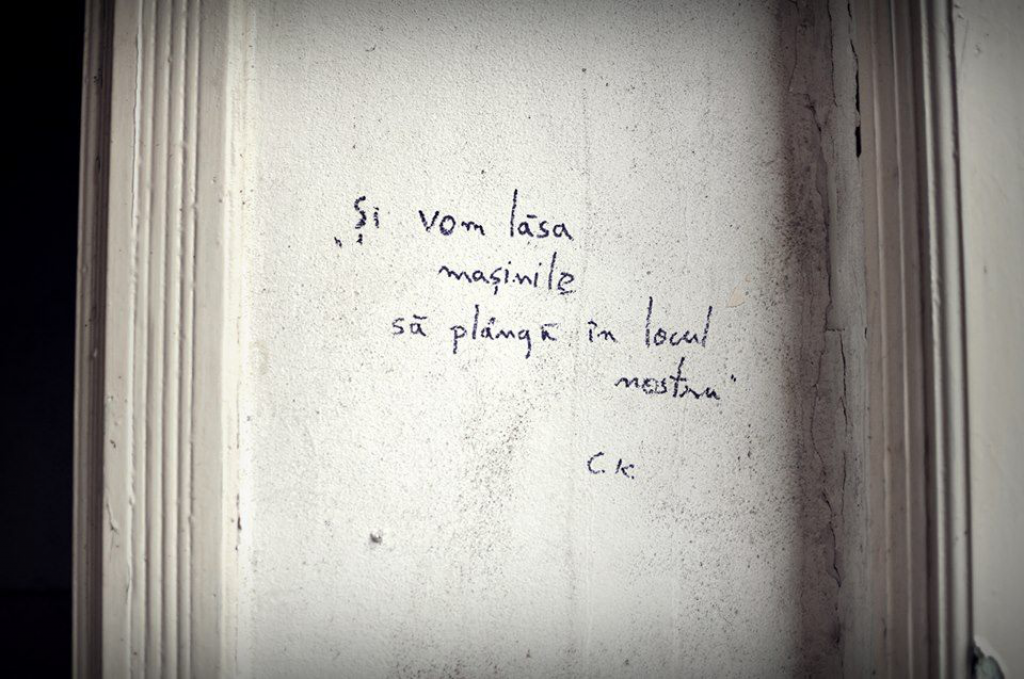 „Și vom lăsa
mașinile
să plângă în locul
nostru"
C.K.